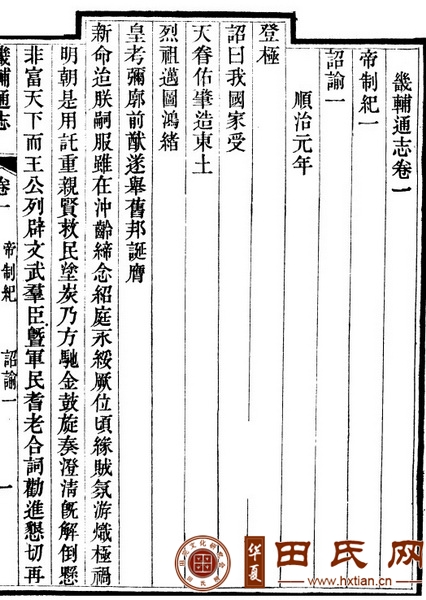 畿輔通志卷一
帝制紀一
詔諭一
順治元年
登極
詔曰我國家受
天眷佑肇造東土
烈祖邁圖鴻緒
皇考彌廓前猷遂舉舊邦誕膺
新命迨朕嗣服雖在沖齡締念紹庭永綏厥位頃緣賊氛洊熾極禍
明朝是用託重親賢救民塗炭乃方馳金鼓旋奏澄清旣解倒懸
非富天下而王公列辟文武羣臣曁軍民耆老合詞勸進懇切再
畿輔通志
卷一
帝制紀
詔諭一
一
華夏
田氏网
www.hxtian.cn